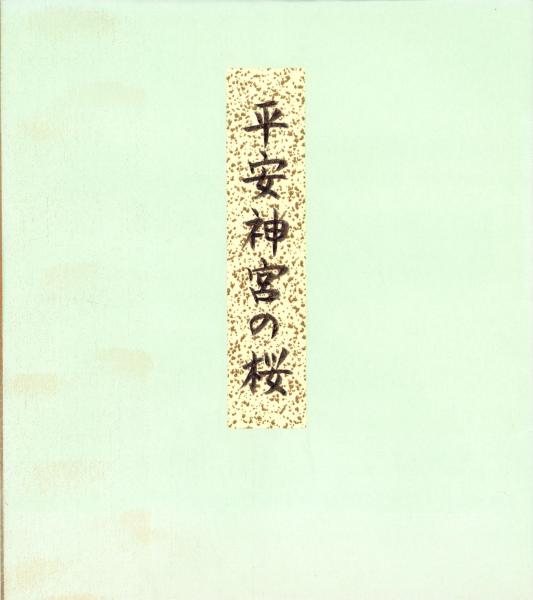 平安神宮の桜